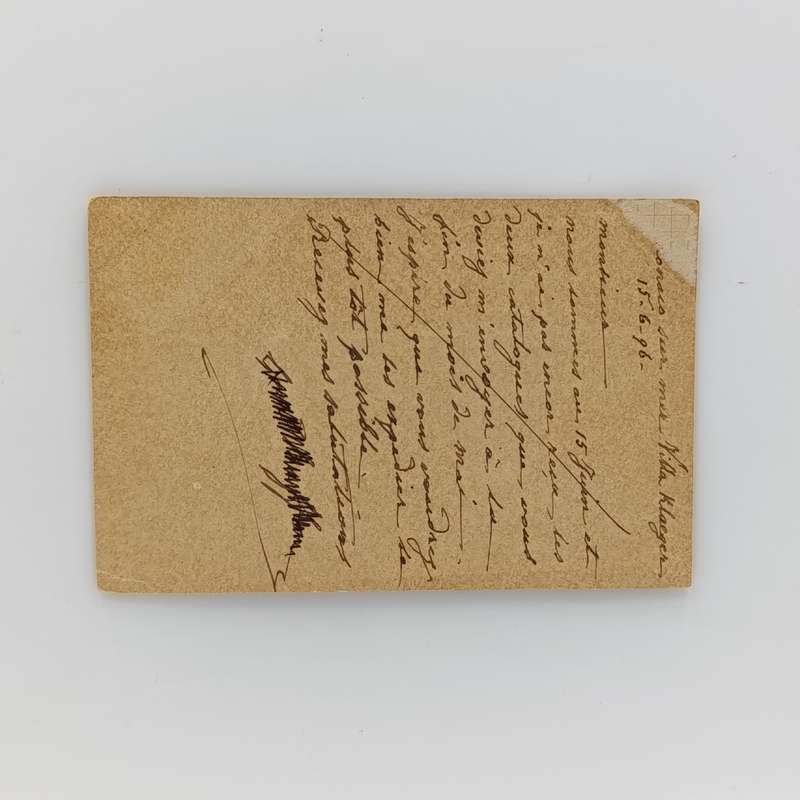 sur mer Villa Klaeger
15.6.96-
monsieur
nous sommes au 15 Juin et
je n'ai pas encor reçu les
deux catalogues que vous
deviez m'envoyer à la
fin du mois de mai.
J'espire que vous voudrez
bien me les expedier le
plus tôt possible.
Recevez mes salutations